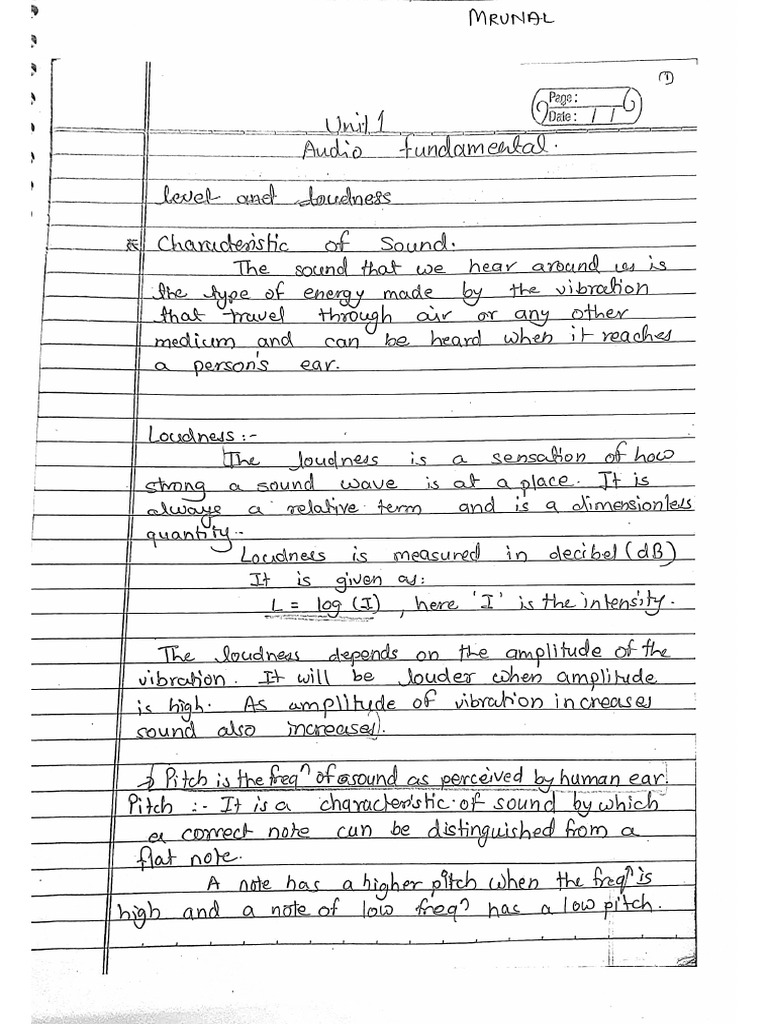 MRUNAL
1
Page:
Date: / /
Unit 1
Audio fundamental.
level and loudness
* Characteristic of Sound.
The sound that we hear around us is
the type of energy made by the vibration
that travel through air or any other
medium and can be heard when it reaches
a person's ear.
Loudness :-
The loudness is a sensation of how
strong a sound wave is at a place. It is
always a relative term and is a dimensionless
quantity.
Loudness is measured in decibel (dB)
It is given as:
L = log (I), here 'I' is the intensity.
The loudness depends on the amplitude of the
vibration. It will be louder when amplitude
is high. As amplitude of vibration increases
sound also increases).
→ Pitch is the freqⁿ of a sound as perceived by human ear.
Pitch :- It is a characteristic of sound by which
a correct note can be distinguished from a
flat note.
A note has a higher pitch when the freqⁿ is
high and a note of low freqⁿ has a low pitch.